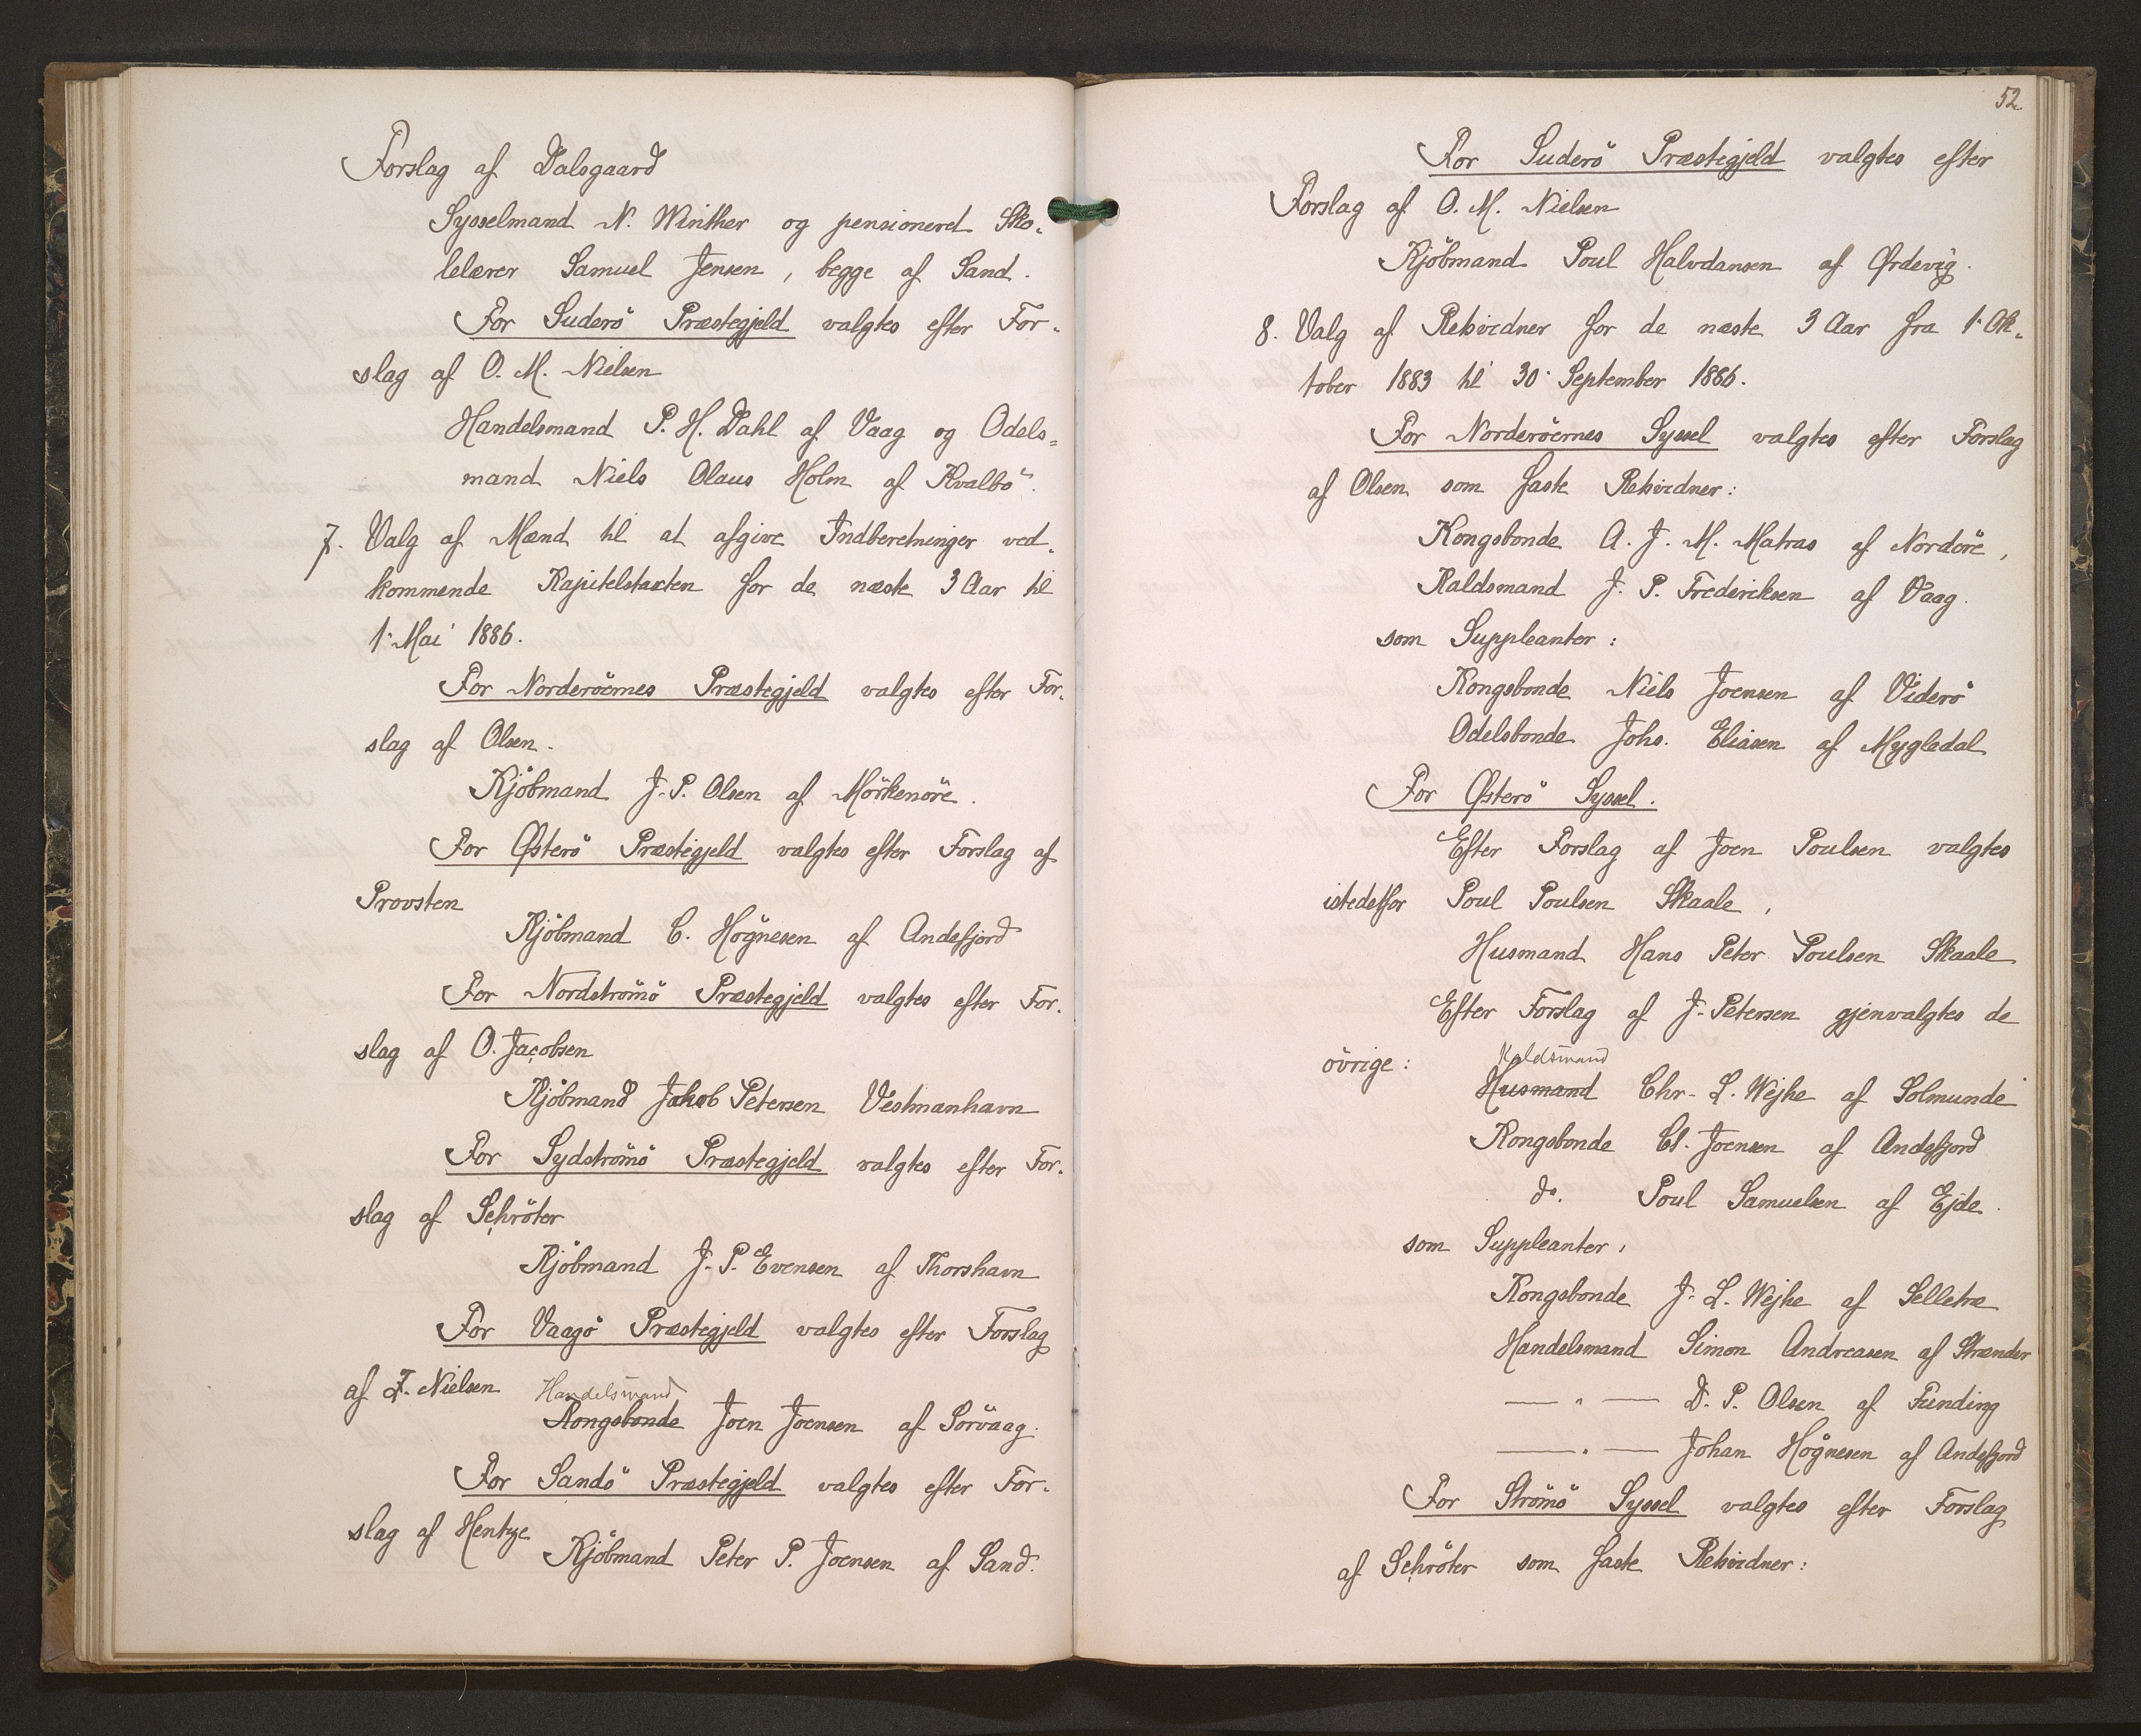 Forslag af Dalsgaard
Sysselmand N. Winther og pensioneret Sko-
lelærer Samuel Jensen, begge af Sand.
For Suderö Præstegjeld valgtes efter For-
slag af O. M. Nielsen
Handelsmand P. H. Dahl af Vaag og Odels-
mand Niels Olaus Holm af Kvalbö.
7. Valg af Mænd til at afgive Indberetninger ved-
kommende Kapitelstaxten for de næste 3 Aar til
1. Mai 1886.
For Norderöernes Præstegjeld valgtes efter For-
slag af Olsen.
Kjöbmand J. P. Olsen af Mörkenöre.
For Østerö Præstegjeld valgtes efter Forslag af
Provsten
Kjöbmand C. Högnesen af Andefjord
For Nordströmö Præstegjeld valgtes efter For-
slag af O. Jacobsen
Kjöbmand Jakob Petersen Vestmanhavn
For Sydströmö Præstegjeld valgtes efter For-
slag af Schröter
Kjöbmand J. P. Evensen af Thorshavn
For Vaagö Præstegjeld valgtes efter Forslag
af Nielsen Handelsmand
Kongsbonde Joen Joensen af Sörvaag.
For Sandö Præstegjeld valgtes efter For-
slag af Hentze
Kjöbmand Peter P. Joensen af Sand.
52.
For Suderö Præstegjeld valgtes efter
Forslag af O. M. Nielsen
Kjöbmand Poul Halvdansen af Ørdevig.
8. Valg af Retsvidner for de næste 3 Aar fra 1. Ok-
tober 1883 til 30. September 1886.
For Norderöernes Syssel valgtes efter Forslag
af Olsen som faste Retsvidner:
Kongsbonde A. J. M. Matras af Nordöre,
Kaldsmand J. P. Frederiksen af Vaag.
som Suppleanter:
Kongsbonde Niels Joensen af Viderö
Odelsbonde Johs. Eliasen af Mygledal
For Østerö Syssel.
Efter Forslag af Joen Poulsen valgtes
istedetfor Poul Poulsen Skaale,
Husmand Hans Peter Poulsen Skaale
Efter Forslag af J. Petersen gjenvalgtes de
övrige: Kaldsmand
Husmand Chr. L. Wejhe af Solmunde
Kongsbonde Cl. Joensen af Andefjord
do. Poul Samuelsen af Ejde.
som Suppleanter,
Kongsbonde J. L. Wejhe af Selletræ
Handelsmand Simon Andreasen af Strænder
— " — D. P. Olsen af Funding
— " — Johan Högnesen af Andefjord
For Strömö Syssel valgtes efter Forslag
af Schröter som faste Retsvidner: